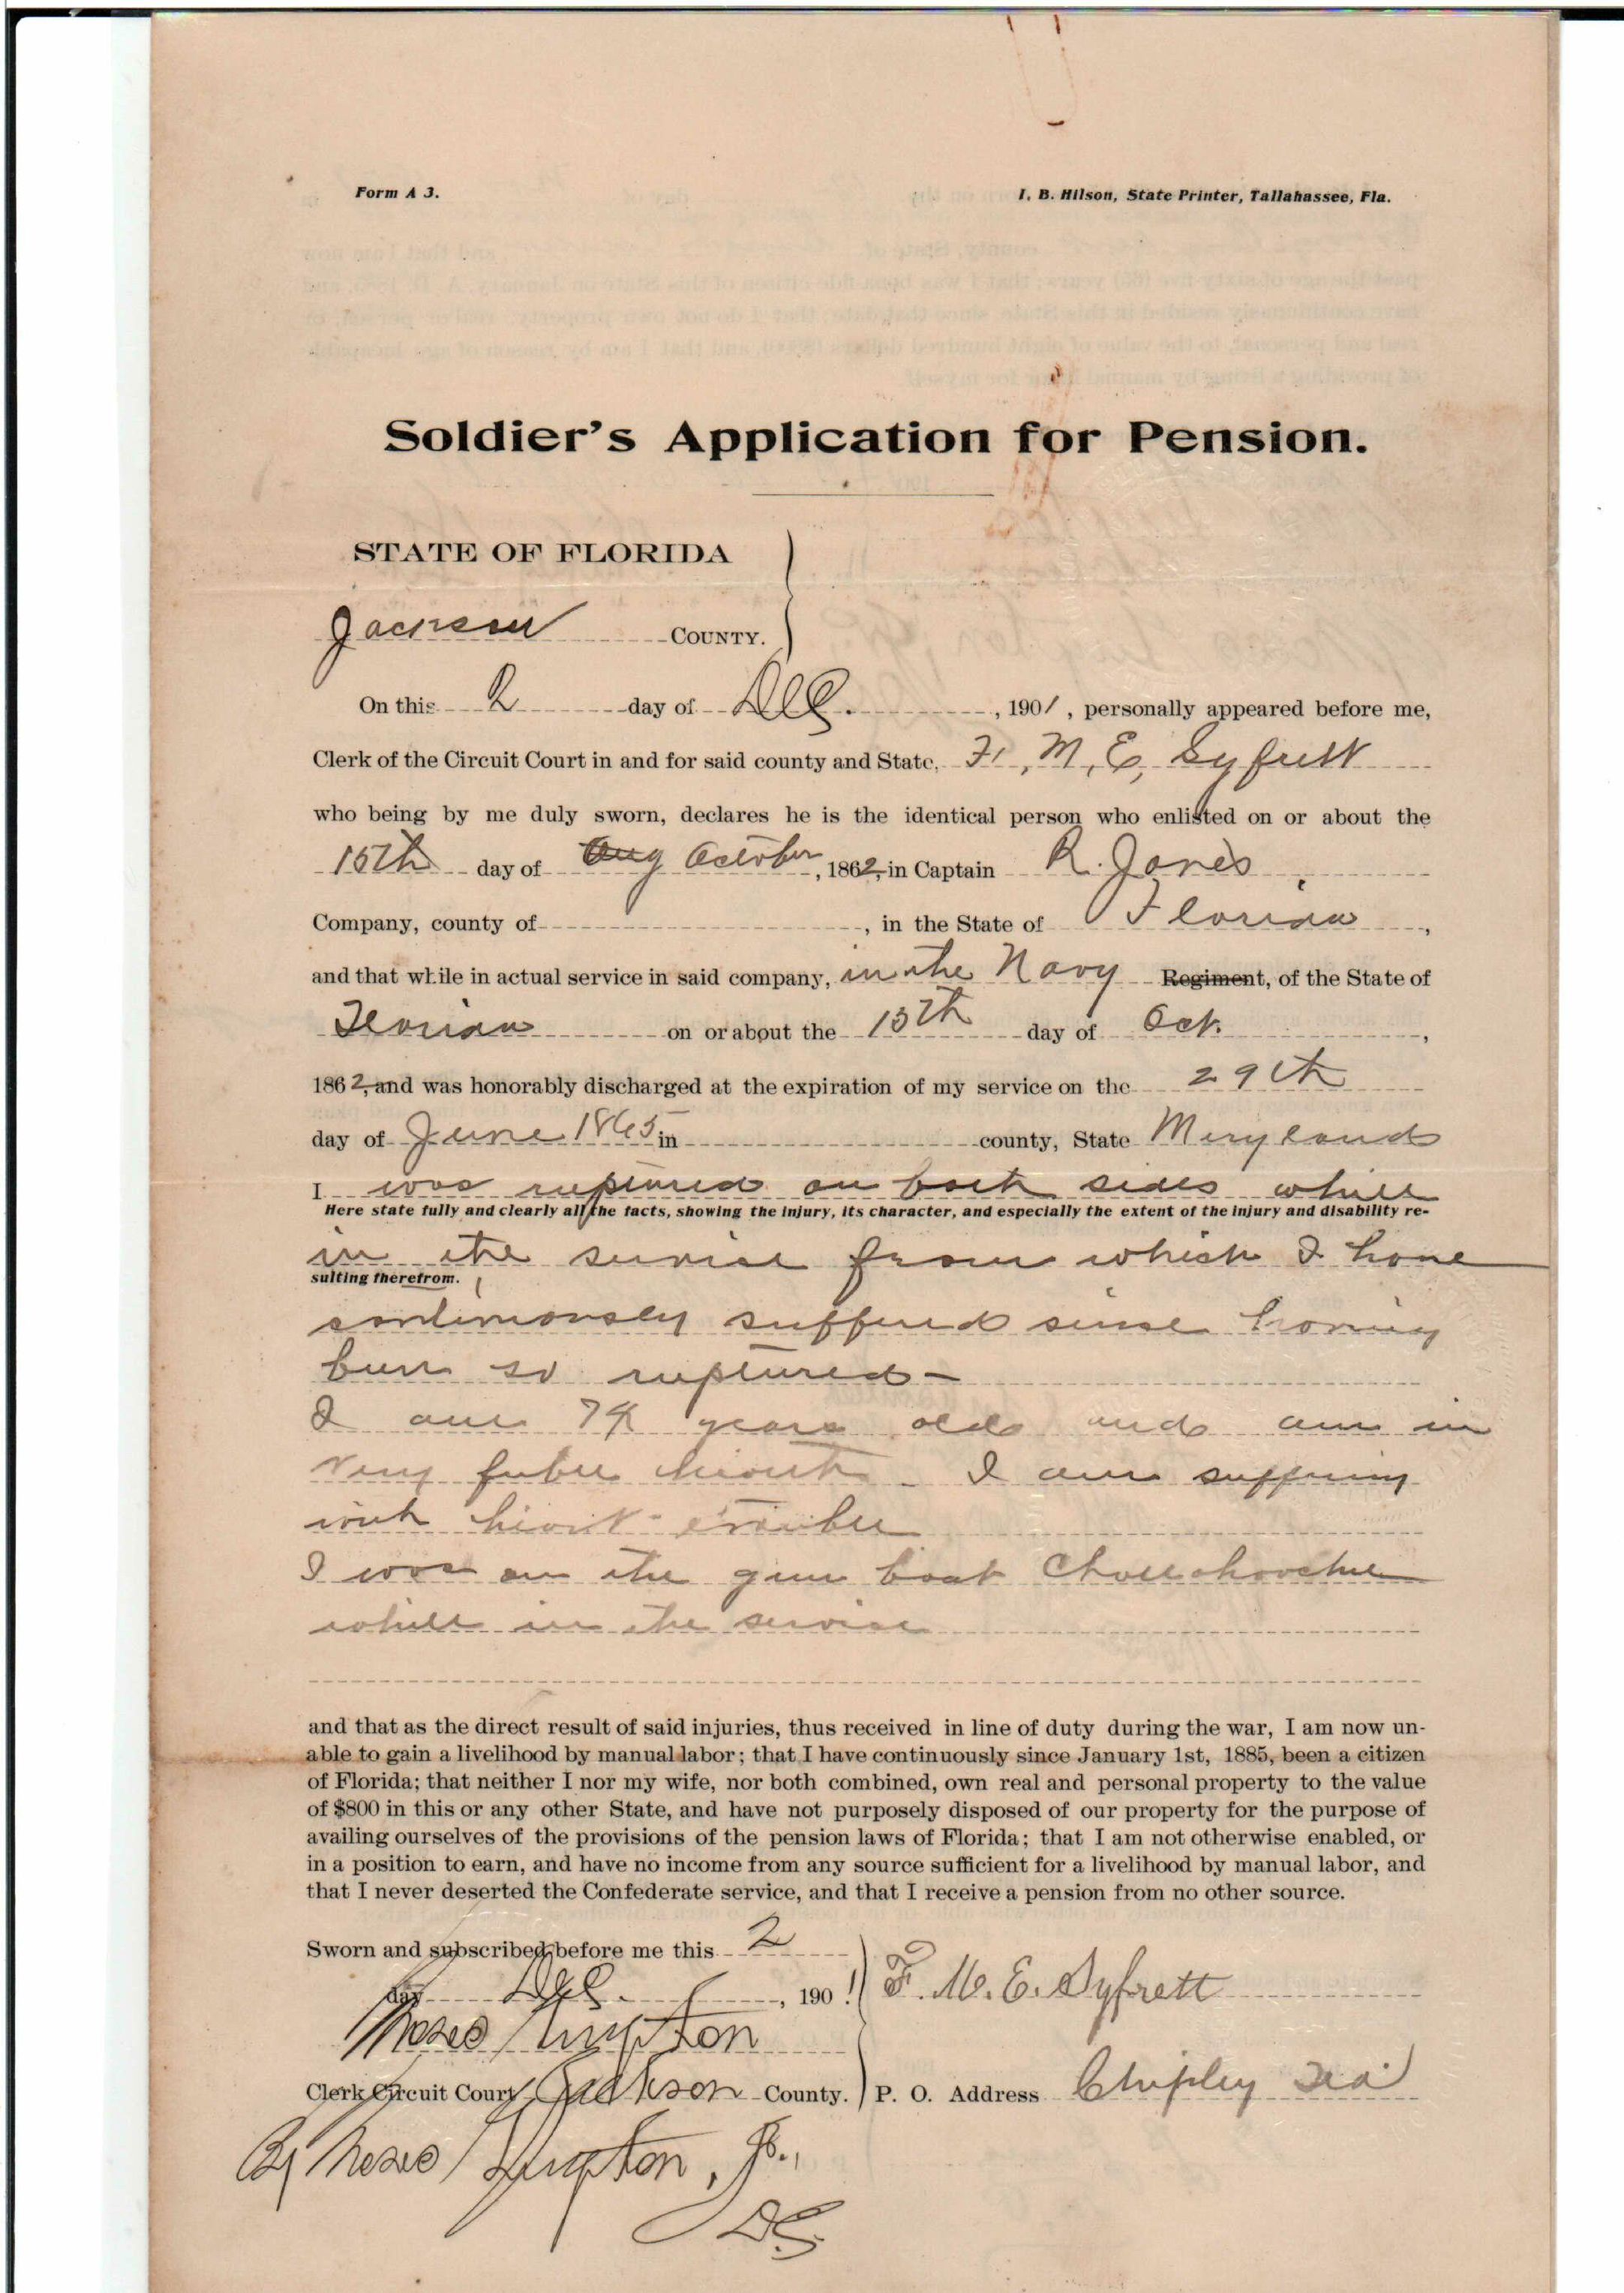 Form A 3.
I. B. Hilson, State Printer, Tallahassee, Fla.
Soldier's Application for Pension.
STATE OF FLORIDA
Jackson COUNTY.
On this 2 day of Dec. , 1901 , personally appeared before me,
Clerk of the Circuit Court in and for said county and State, F. M. E. Syfrett
who being by me duly sworn, declares he is the identical person who enlisted on or about the
15th day of Aug October, 1862, in Captain R. Jones
Company, county of , in the State of Florida ,
and that while in actual service in said company, in the Navy Regiment, of the State of
Florida on or about the 15th day of Oct. ,
1862, and was honorably discharged at the expiration of my service on the 29th
day of June 1865 in county, State Maryland
I was ruptured on both sides while
Here state fully and clearly all the facts, showing the injury, its character, and especially the extent of the injury and disability re-
in the service from which I have
sulting therefrom.
continuously suffered since having
been so ruptured -
I am 74 years old and am in
very feble health I am suffering
with heart trouble
I was on the gun boat
while in the service
and that as the direct result of said injuries, thus received in line of duty during the war, I am now un-
able to gain a livelihood by manual labor; that I have continuously since January 1st, 1885, been a citizen
of Florida; that neither I nor my wife, nor both combined, own real and personal property to the value
of $800 in this or any other State, and have not purposely disposed of our property for the purpose of
availing ourselves of the provisions of the pension laws of Florida; that I am not otherwise enabled, or
in a position to earn, and have no income from any source sufficient for a livelihood by manual labor, and
that I never deserted the Confederate service, and that I receive a pension from no other source.
Sworn and subscribed before me this 2
day Dec. , 1901 F. M. E. Syfrett
Moses Guyton
Clerk Circuit Court Jackson County. P. O. Address Chipley Fla
By Moses Guyton, Jr.,
D.C.